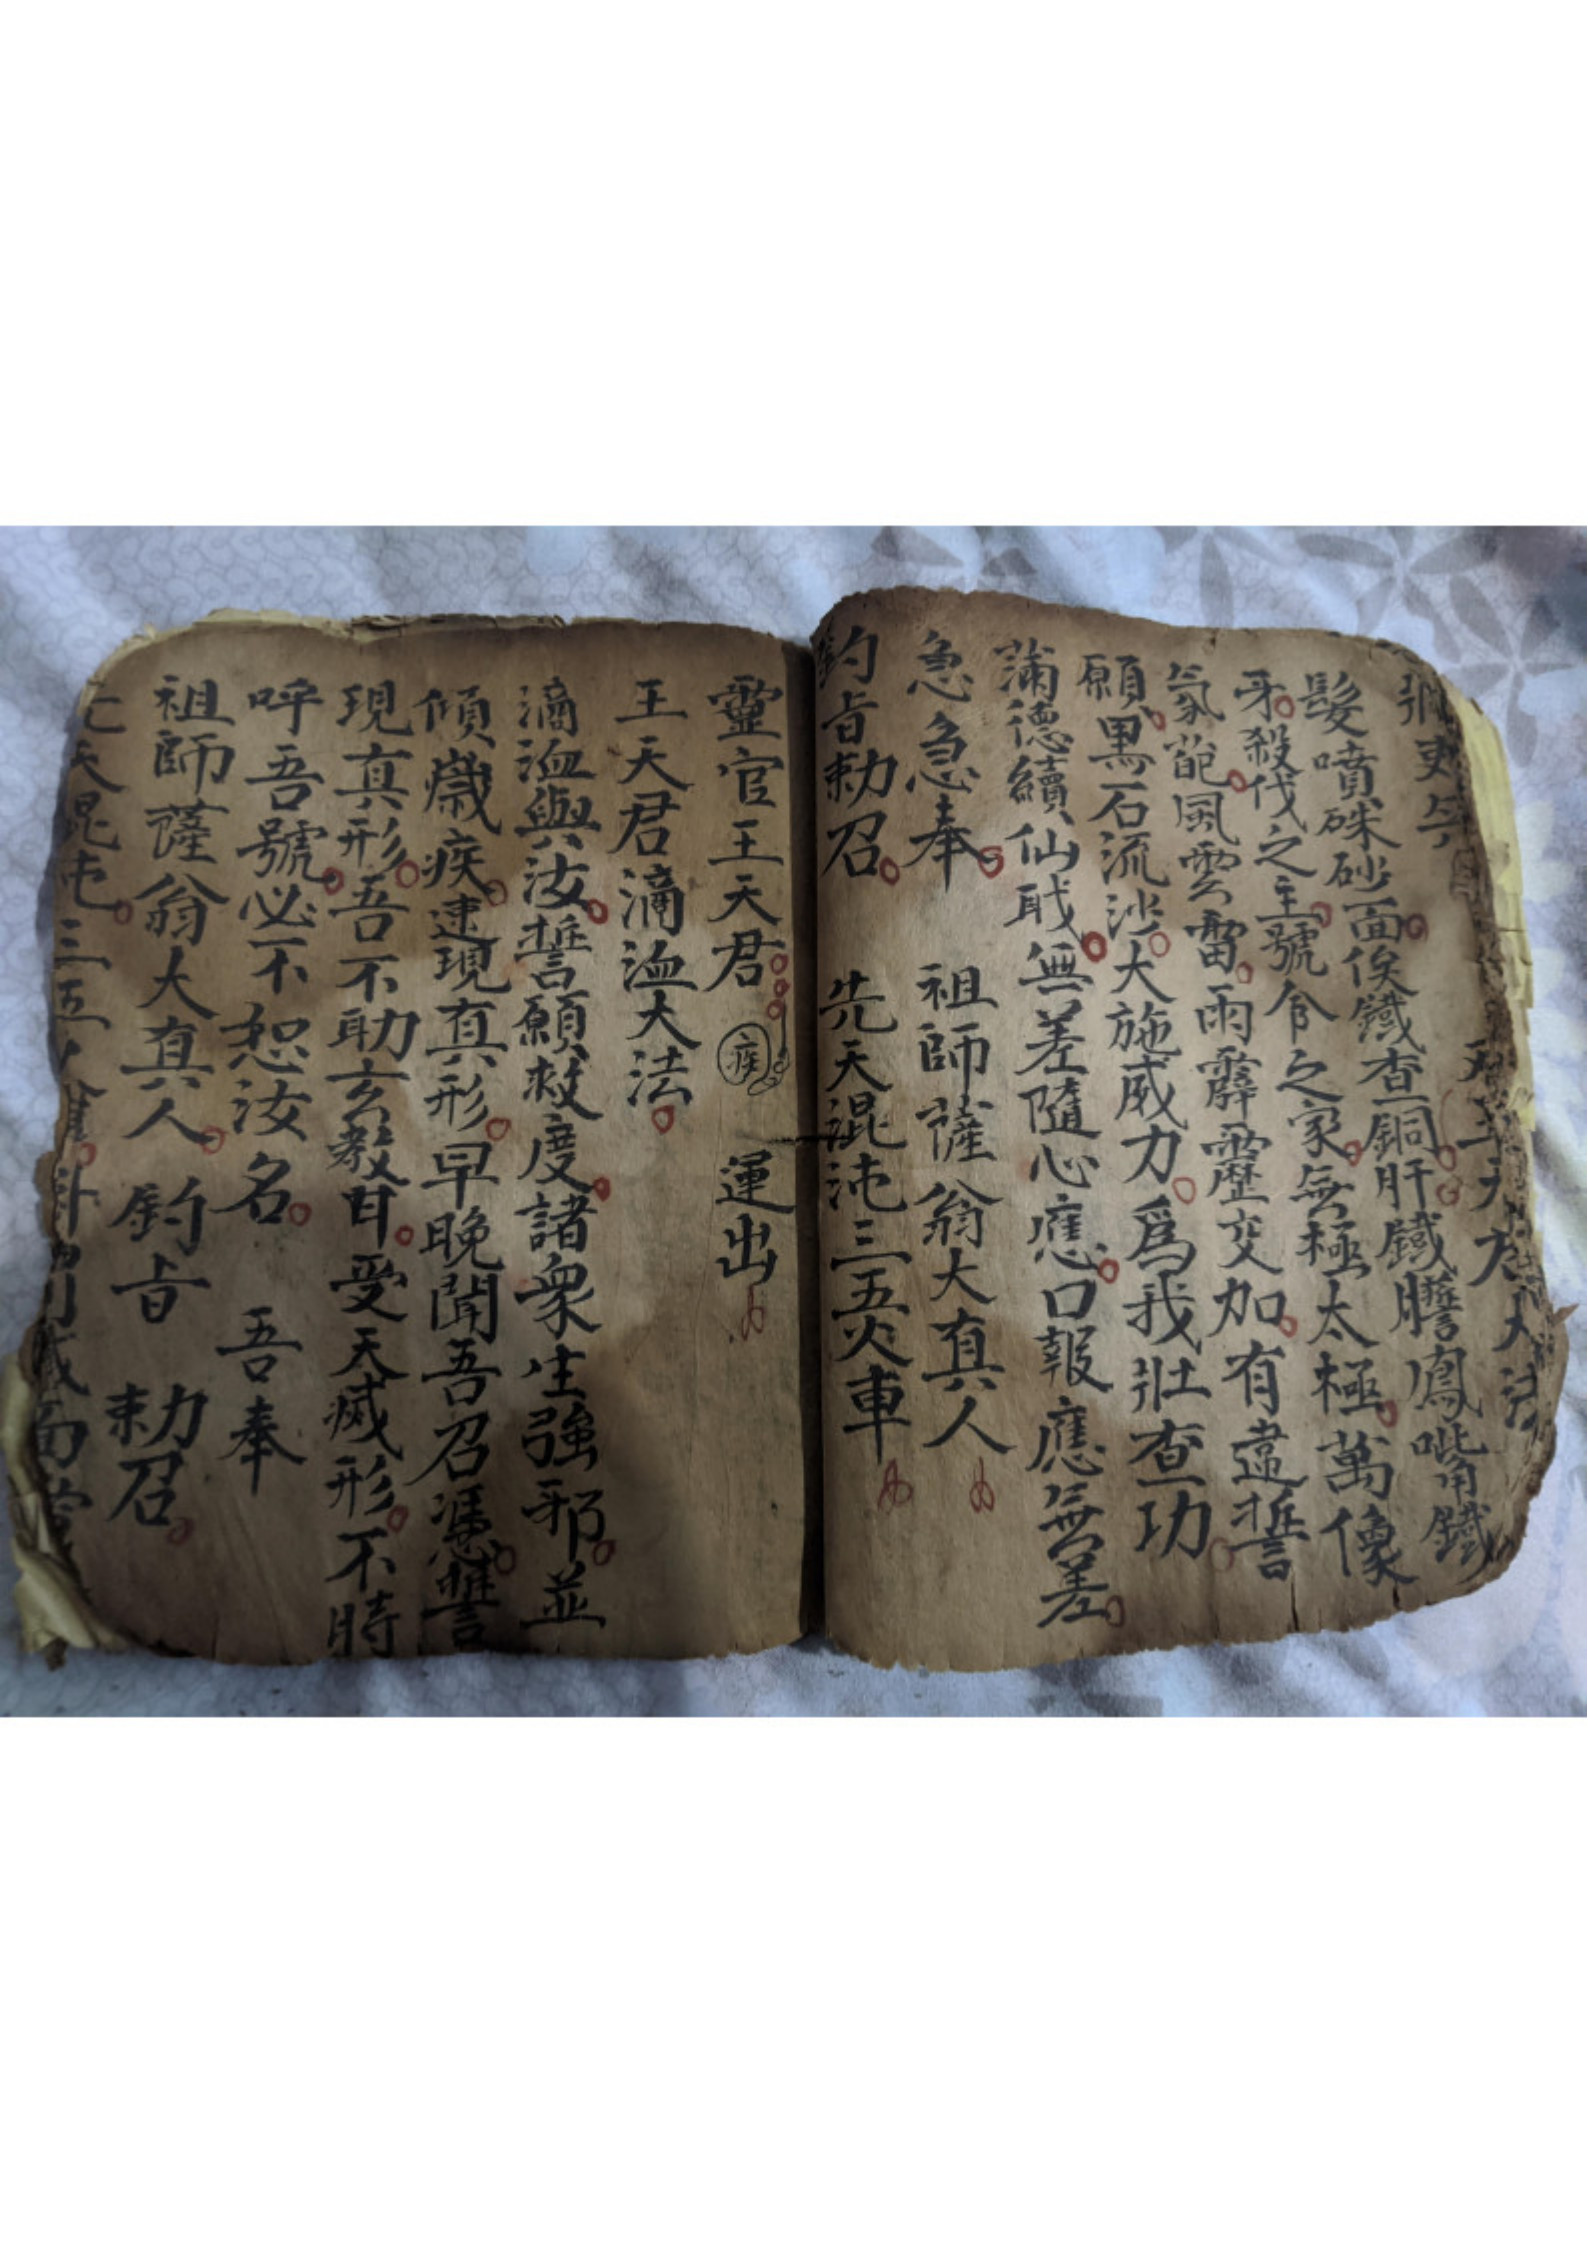 天君大法
髮噴硃砂面俟鐵查銅肝鐵膽鳳嘴鐵
牙殺伐之主號令之家無極太極萬像
氛範風雲雷雨霹靂交加有違誓
願黑石流沙大施威力爲我壯查功
滿德續仙戝無差隨心應口報應無差
急急奉 祖師薩翁大真人
鈞旨勅召 先天混沌三五火車
靈官王天君 疾 運出
王天君滴洫大法
滴洫與汝誓願救度諸衆生強邪並
傾歲疾速現真形早晚聞吾召憑誓
現真形吾不助玄教甘受天滅形不時
呼吾號必不恕汝名 吾奉
祖師薩翁大真人 鈞旨 勅召
天混屯三五火